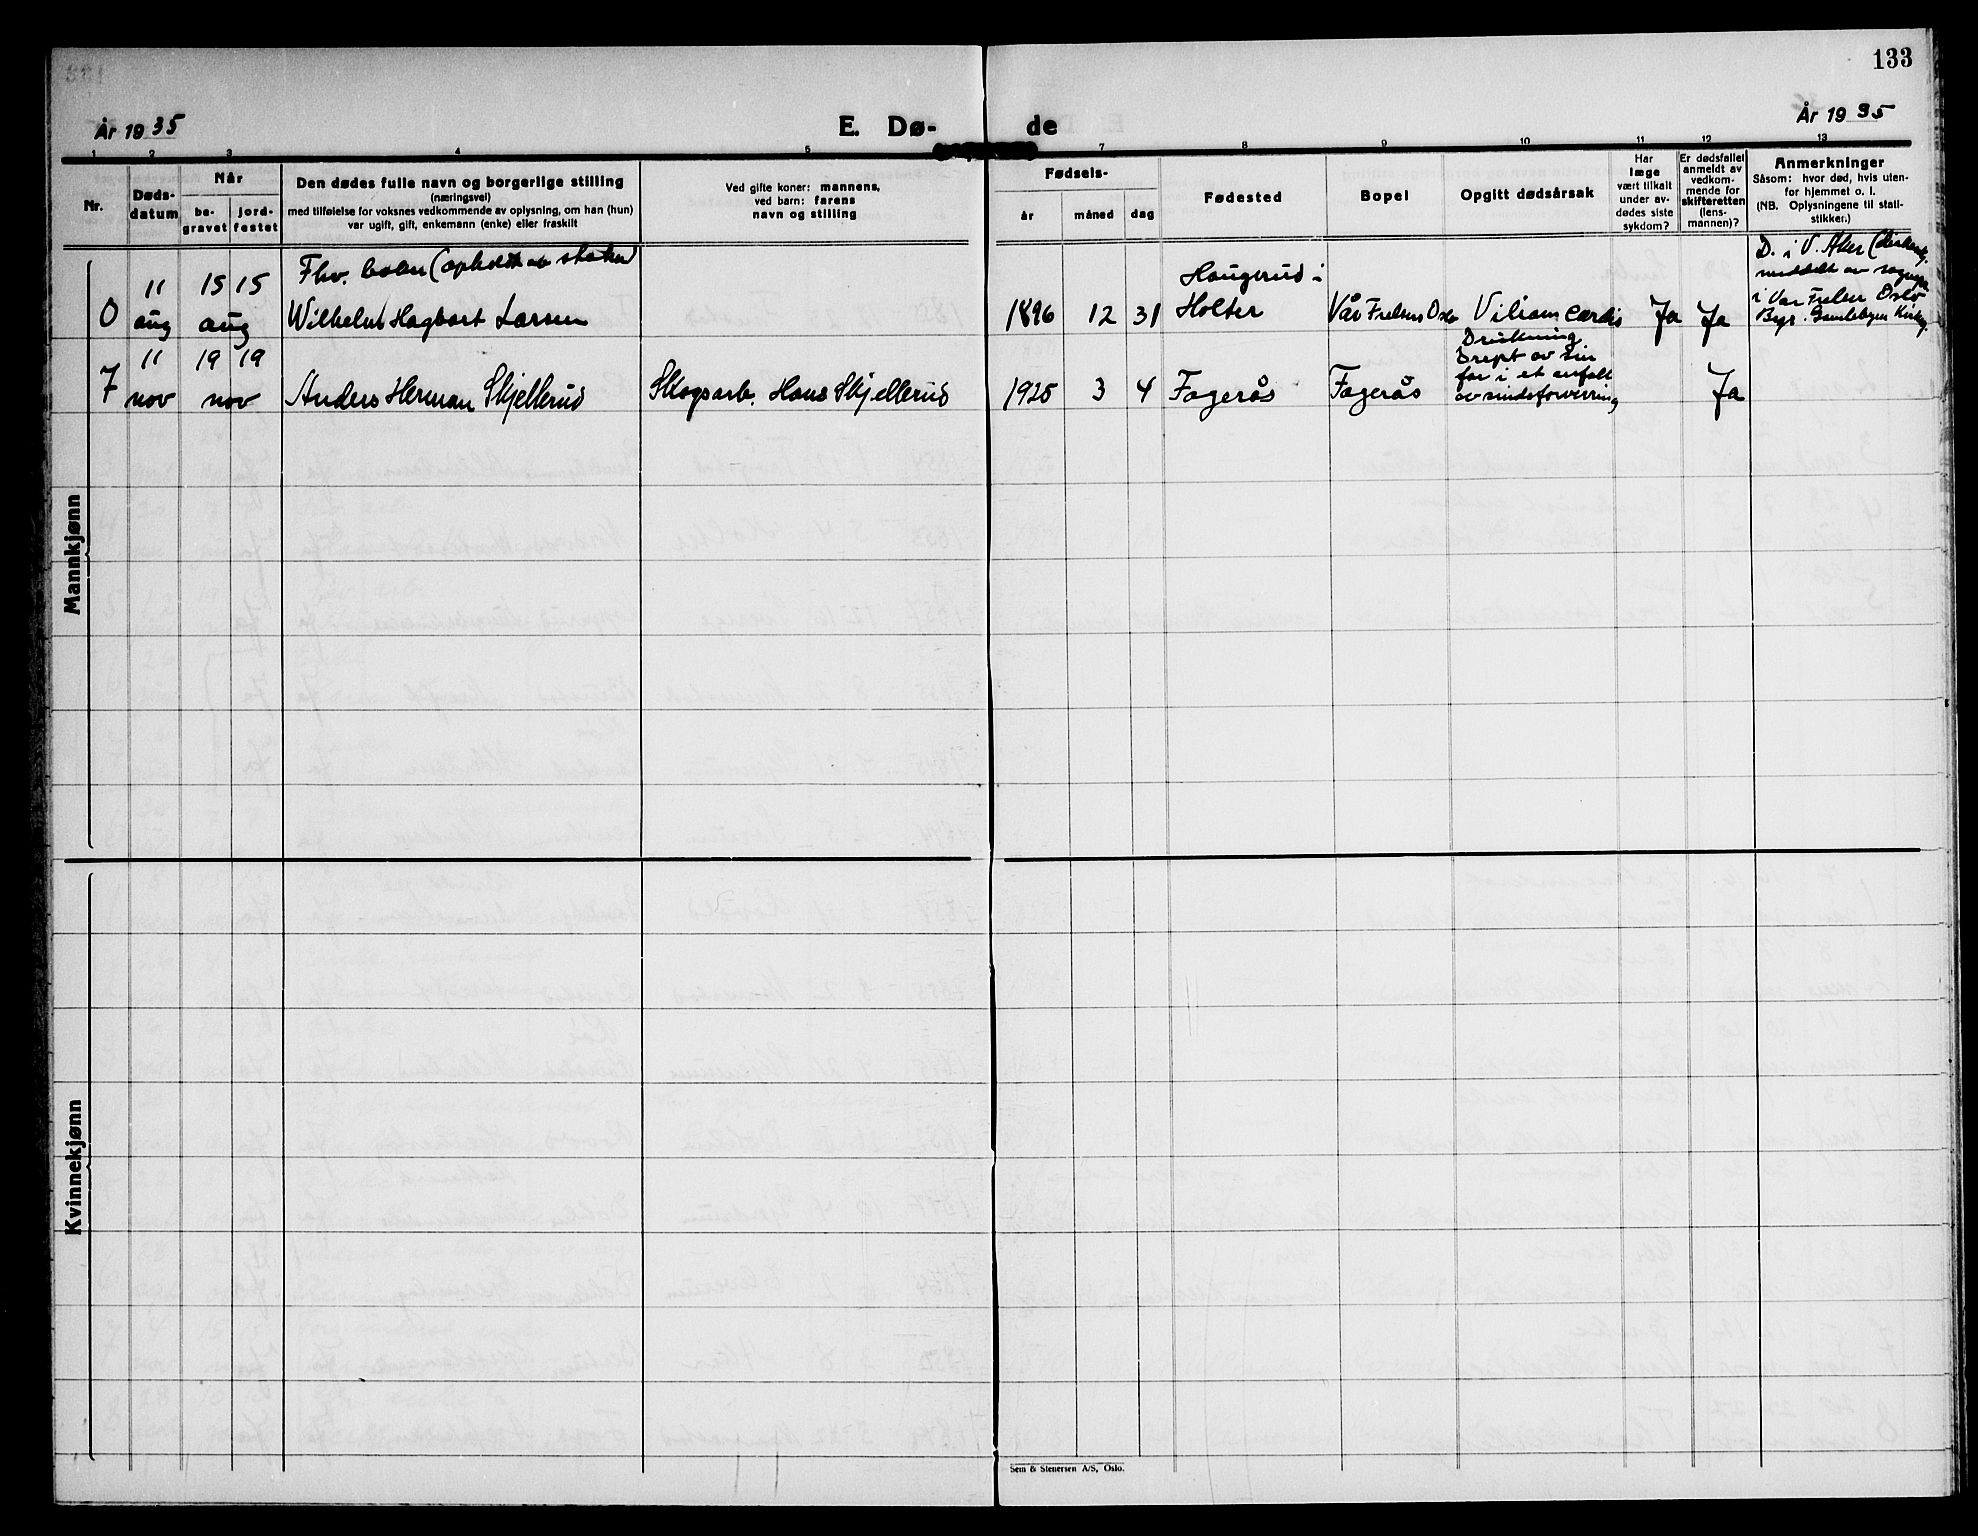 133
År 1935
E. Dø-
de
År 1935
1 2 3 4 5 7 8 9 10 11 12 13
Nr.
Døds-
datum
Når
be-
gravet
jord-
festet
Den dødes fulle navn og borgerlige stilling
(næringsvei)
med tilføielse for voksnes vedkommende av oplysning, om han (hun)
var ugift, gift, enkemann (enke) eller fraskilt
Ved gifte koner: mannens,
ved barn: farens
navn og stilling
Fødsels-
år måned dag
Fødested
Bopel
Opgitt dødsårsak
Har
læge
vært tilkalt
under av-
dødes siste
sykdom?
Er dødsfallet
anmeldt av
vedkom-
mende for
skifteretten
(lens-
mannen)?
Anmerkninger
Såsom: hvor død, hvis uten-
for hjemmet o. l.
(NB. Oplysningene til stati-
stikker.)
Mannkjønn
0
11
aug
15 15
aug
Fhv.
Wilhelm Hagbart Larsen
1896 12 31
Haugerud i
Holter
Vår Frelsers Oslo
Ja Ja
D. i V. Aker
meddelt av
i Vår Frelser Oslo
Gamlebyen
7
11
nov
19 19
nov
Anders Herman Skjellerud
Skogsarb. Hans Skjellerud
1925 3 4
Fagerås
Fagerås
Drukning
Drept av sin
far i et anfall
av sindsforvirring
Ja
Kvinnekjønn
Sem & Stenersen A/S, Oslo.